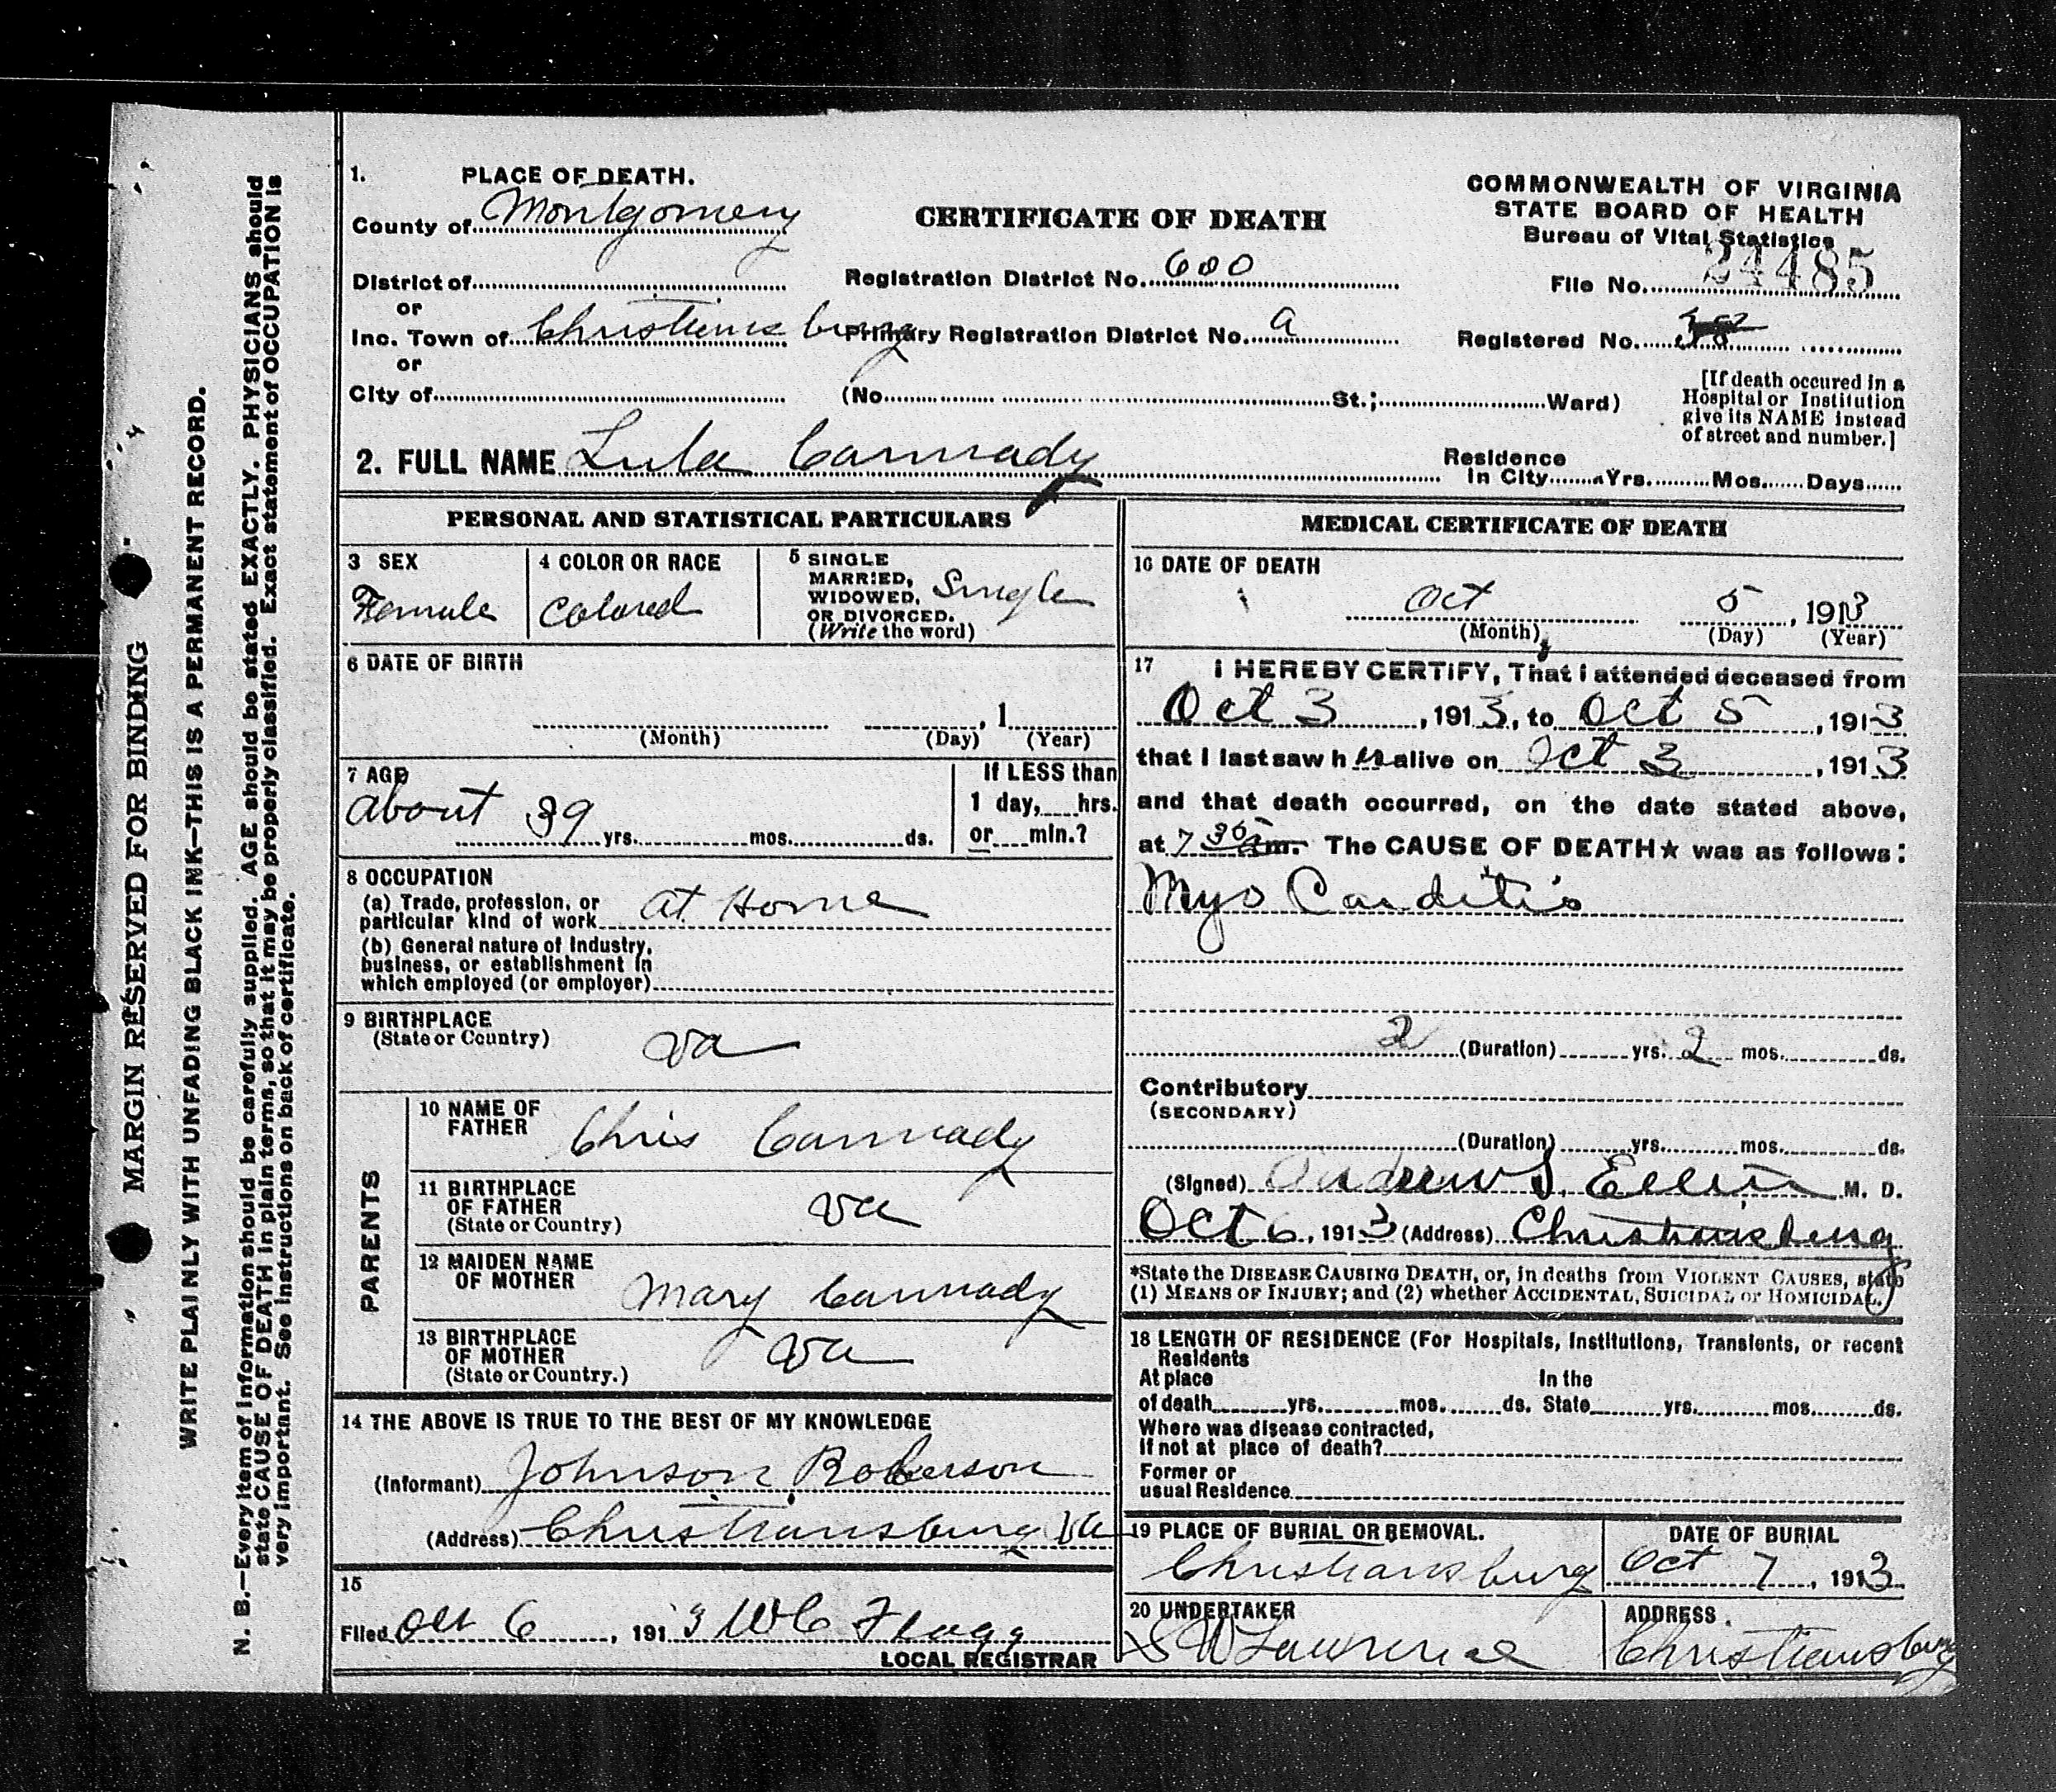 MARGIN RESERVED FOR BINDING
WRITE PLAINLY WITH UNFADING BLACK INK—THIS IS A PERMANENT RECORD.
N. B.—Every item of information should be carefully supplied. AGE should be stated EXACTLY. PHYSICIANS should
state CAUSE OF DEATH in plain terms, so that it may be properly classified. Exact statement of OCCUPATION is
very important. See instructions on back of certificate.
1. PLACE OF DEATH.
County of Montgomery
District of
or
Inc. Town of Christiansburg
or
City of
CERTIFICATE OF DEATH
Registration District No. 600
Primary Registration District No. a
(No. St.; Ward)
COMMONWEALTH OF VIRGINIA
STATE BOARD OF HEALTH
Bureau of Vital Statistics
File No. 24485
Registered No.
[If death occured in a
Hospital or Institution
give its NAME instead
of street and number.]
2. FULL NAME Lula Cannady
Residence
In City Yrs. Mos. Days
PERSONAL AND STATISTICAL PARTICULARS
3 SEX
Female
4 COLOR OR RACE
Colored
5 SINGLE
MARRIED,
WIDOWED,
OR DIVORCED.
(Write the word)
Single
6 DATE OF BIRTH
, 1
(Month) (Day) (Year)
7 AGE
about 39 yrs. mos. ds.
If LESS than
1 day, hrs.
or min.?
8 OCCUPATION
(a) Trade, profession, or
particular kind of work at Home
(b) General nature of Industry,
business, or establishment in
which employed (or employer)
9 BIRTHPLACE
(State or Country)
Va
PARENTS
10 NAME OF
FATHER
Chris Cannady
11 BIRTHPLACE
OF FATHER
(State or Country)
Va
12 MAIDEN NAME
OF MOTHER
Mary Cannady
13 BIRTHPLACE
OF MOTHER
(State or Country.)
Va
14 THE ABOVE IS TRUE TO THE BEST OF MY KNOWLEDGE
(Informant) Johnson Roberson
(Address) Christiansburg Va
15
Filed Oct 6, 1913 W C Flagg
LOCAL REGISTRAR
MEDICAL CERTIFICATE OF DEATH
16 DATE OF DEATH
Oct 5, 1913
(Month) (Day) (Year)
17 I HEREBY CERTIFY, That I attended deceased from
Oct 3, 1913, to Oct 5, 1913
that I last saw h er alive on Oct 3, 1913
and that death occurred, on the date stated above,
at 7 30 a m. The CAUSE OF DEATH★ was as follows:
Myo Carditis
2 (Duration) yrs. 2 mos. ds.
Contributory
(SECONDARY)
(Duration) yrs. mos. ds.
(Signed) Andrew S. Ellis M. D.
Oct 6, 1913 (Address) Christiansburg
*State the DISEASE CAUSING DEATH, or, in deaths from VIOLENT CAUSES, state
(1) MEANS OF INJURY; and (2) whether ACCIDENTAL, SUICIDAL or HOMICIDAL.
18 LENGTH OF RESIDENCE (For Hospitals, Institutions, Transients, or recent
Residents
At place In the
of death yrs. mos. ds. State yrs. mos. ds.
Where was disease contracted,
if not at place of death?
Former or
usual Residence
19 PLACE OF BURIAL OR REMOVAL.
Christiansburg
DATE OF BURIAL
Oct 7, 1913
20 UNDERTAKER
S W Lawrence
ADDRESS.
Christiansburg